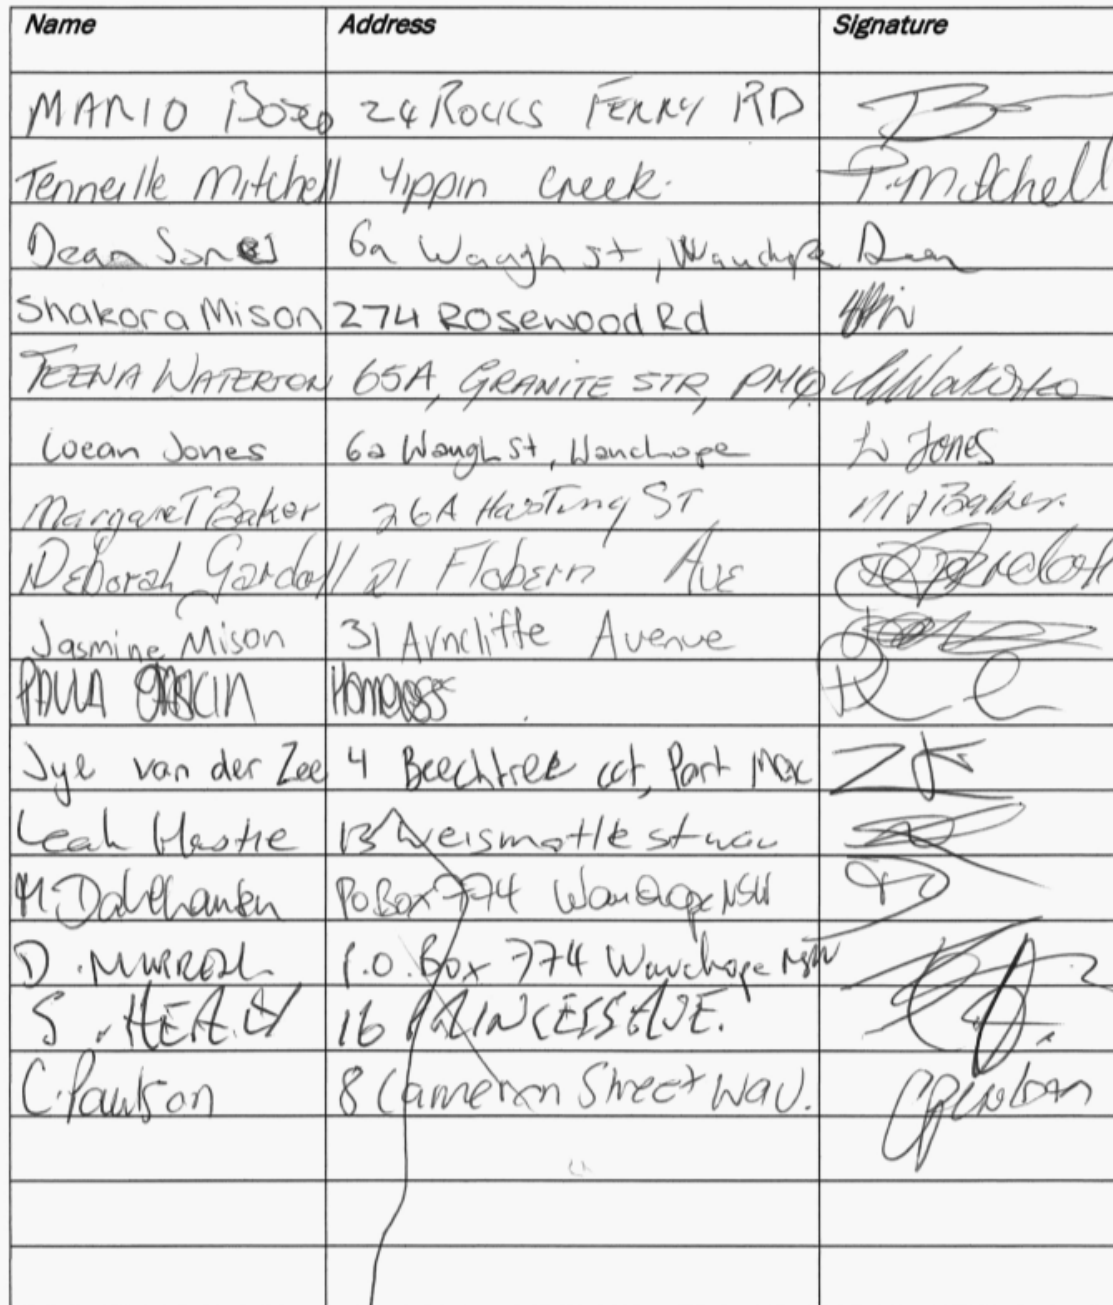 Name Address Signature
MARIO Bozo 24 ROCKS FERRY RD
Tenneille Mitchell Yippin Creek. T. Mitchell
Dean Jones 6a Waugh st, Wauchope Dean
Shakora Mison 274 Rosewood Rd
TEENA WATERTON 65A, GRANITE STR, PMQ
Loean Jones 6a Waugh St, Wauchope L Jones
Margaret Baker 26A Hasting ST M J Baker.
Deborah Gardoll 21 Flobern Ave
Jasmine Mison 31 Arncliffe Avenue
PAULA Homeless.
Jye van der Zee 4 Beechtree cct, Port Mac
Leah Hastie 13 st wau
M Dahlhausen Po Box 774 Wauchope NSW
D. MURRELL P.O. Box 774 Wauchope NSW
S. HEALY 16 PRINCESS AVE.
C. Paulson 8 Cameron Street Wau.